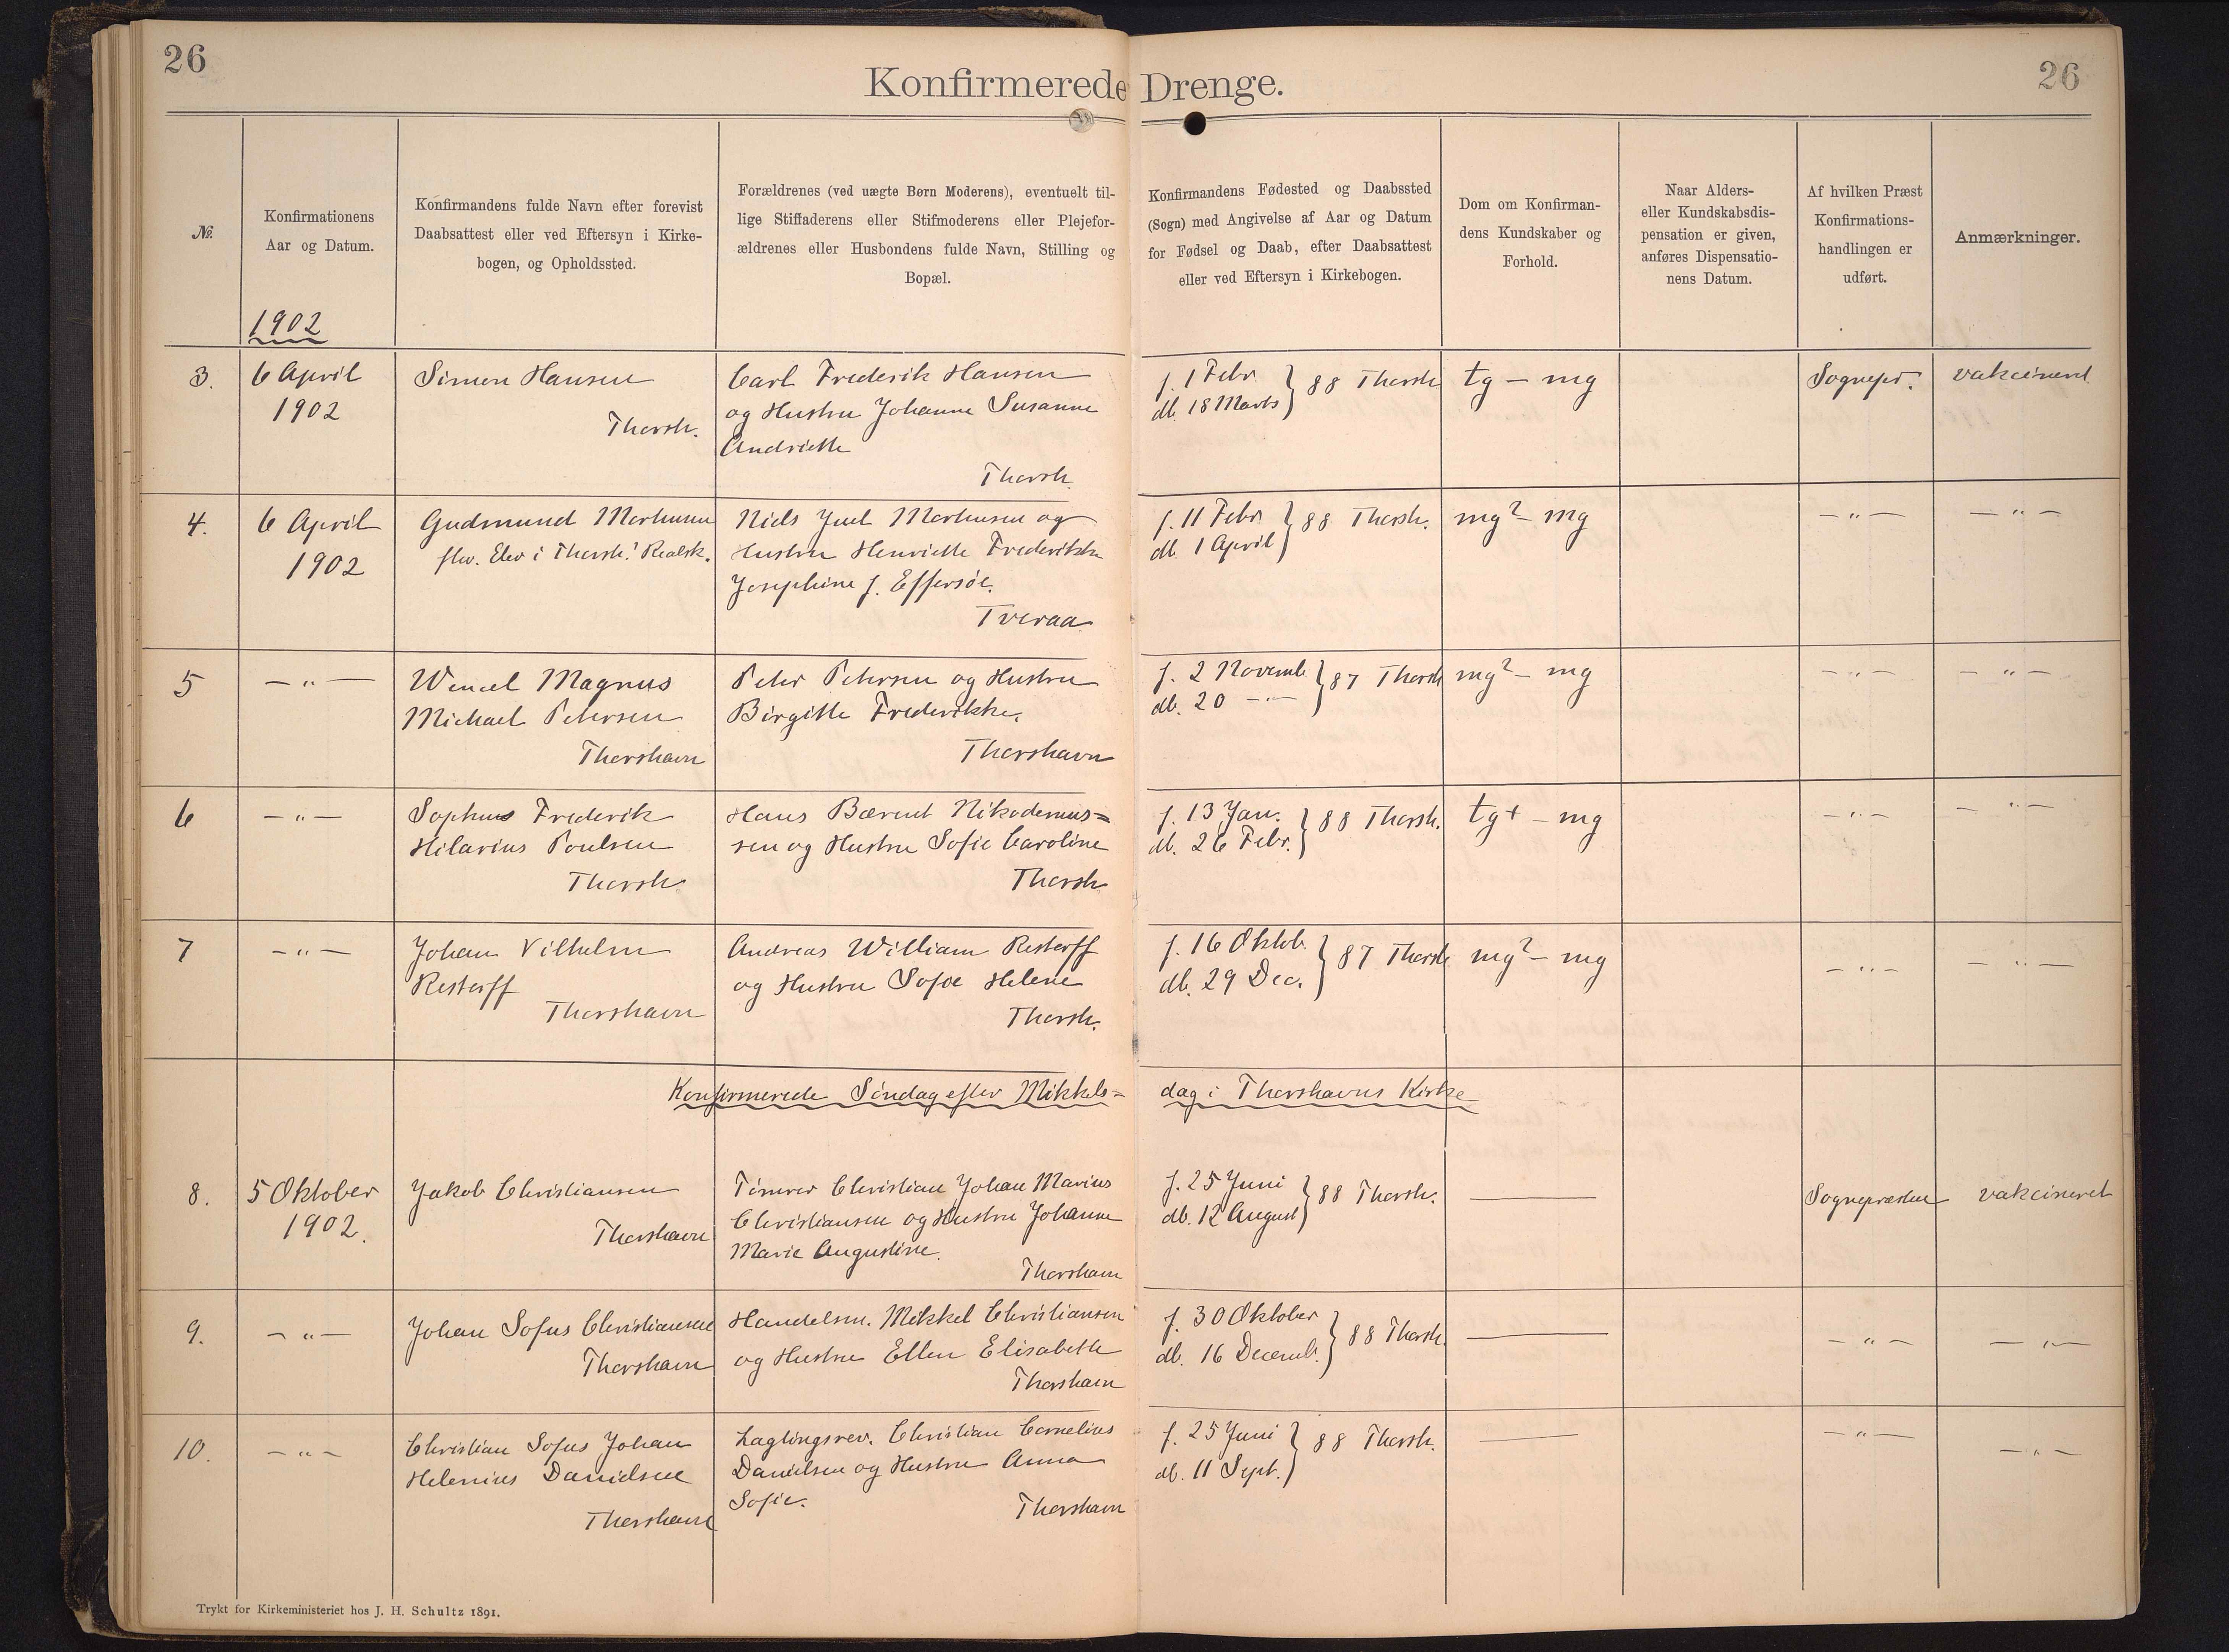 26
26
Konfirmerede Drenge.
№.
Konfirmationens
Aar og Datum.
Konfirmandens fulde Navn efter forevist
Daabsattest eller ved Eftersyn i Kirke-
bogen, og Opholdssted.
Forældrenes (ved uægte Børn Moderens), eventuelt til-
lige Stiffaderens eller Stifmoderens eller Plejefor-
ældrenes eller Husbondens fulde Navn, Stilling og
Bopæl.
Konfirmandens Fødested og Daabssted
(Sogn) med Angivelse af Aar og Datum
for Fødsel og Daab, efter Daabsattest
eller ved Eftersyn i Kirkebogen.
Dom om Konfirman-
dens Kundskaber og
Forhold.
Naar Alders-
eller Kundskabsdis-
pensation er given,
anføres Dispensatio-
nens Datum.
Af hvilken Præst
Konfirmations-
handlingen er
udført.
Anmærkninger.
1902
3.
6 April
1902
Simon Hansen
Thorsh.
Carl Frederik Hansen
og Hustru Johanne Susanne
Andriette
Thorsh.
f. 1 Febr
db. 18 Marts } 88 Thorsh
tg – mg
Sognepr.
vakcineret
4.
6 April
1902
Gudmund Morhusen
Elev i Thorsh. Realsk.
Niels Juel Morhusen og
Hustru Henriette Frederikke
Josephine f. Effersöe.
Tveraa
f. 11 Febr
db. 1 April } 88 Thorsh.
mg? – mg
– " –
– " –
5
– " –
Wencel Magnus
Michael Petersen
Thorshavn
Peter Petersen og Hustru
Birgitte Frederikke.
Thorshavn
f. 2 Novemb
db. 20 – " – } 87 Thorsh
mg? – mg
– " –
– " –
6
– " –
Sophus Frederik
Hilarius Poulsen
Thorsh
Hans Bærent Nikodemus=
sen og Hustru Sofie Caroline
Thorsh
f. 13 Jan.
db. 26 Febr. } 88 Thorsh.
tg+ – mg
– " –
– " –
7
– " –
Johan Vilhelm
Restorff
Thorshavn
Andreas William Restorff
og Hustru Sofie Helene
Thorsh.
f. 16 Oktob.
db. 29 Dec. } 87 Thorsh
mg? – mg
– " –
– " –
Konfirmerede Söndag efter Mikkels=dag i Thorshavns Kirke
8.
5 Oktober
1902.
Jakob Christiansen
Thorshavn
Tömrer Christian Johan Marius
Christiansen og Hustru Johanne
Marie Augustine.
Thorshavn
f. 25 Juni
db. 12 August } 88 Thorsh.
—
Sognepræsten
vakcineret
9.
– " –
Johan Sofus Christiansen
Thorshavn
Handelsm. Mikkel Christiansen
og Hustru Ellen Elisabeth
Thorshavn
f. 30 Oktober
db. 16 Decemb. } 88 Thorsh.
—
– " –
– " –
10.
– " –
Christian Sofus Johan
Helenius Danielsen
Thorshavn
Lagtingsrev. Christian Cornelius
Danielsen og Hustru Anna
Sofie.
Thorshavn
f. 25 Juni
db. 11 Sept. } 88 Thorsh.
—
– " –
– " –
Trykt for Kirkeministeriet hos J. H. Schultz 1891.